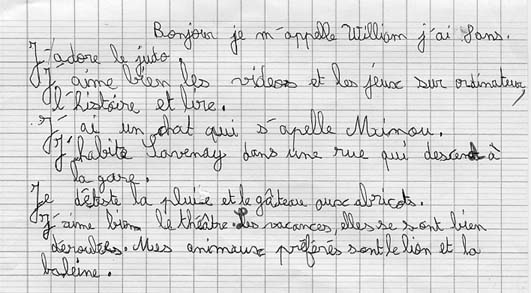 Bonjour je m'appelle William j'ai 9ans.
J'adore le judo.
J'aime bien les videos et les jeux sur ordinateur,
l'histoire et lire.
J'ai un chat qui s'apelle Mimou.
J'habite Savenay dans une rue qui descend à
la gare.
Je déteste la pluie et le gâteau aux abricots.
J'aime bien le théâtre. les vacances, elles se sont bien
déroulées. Mes animaux préférés sont le lion et la
baleine.